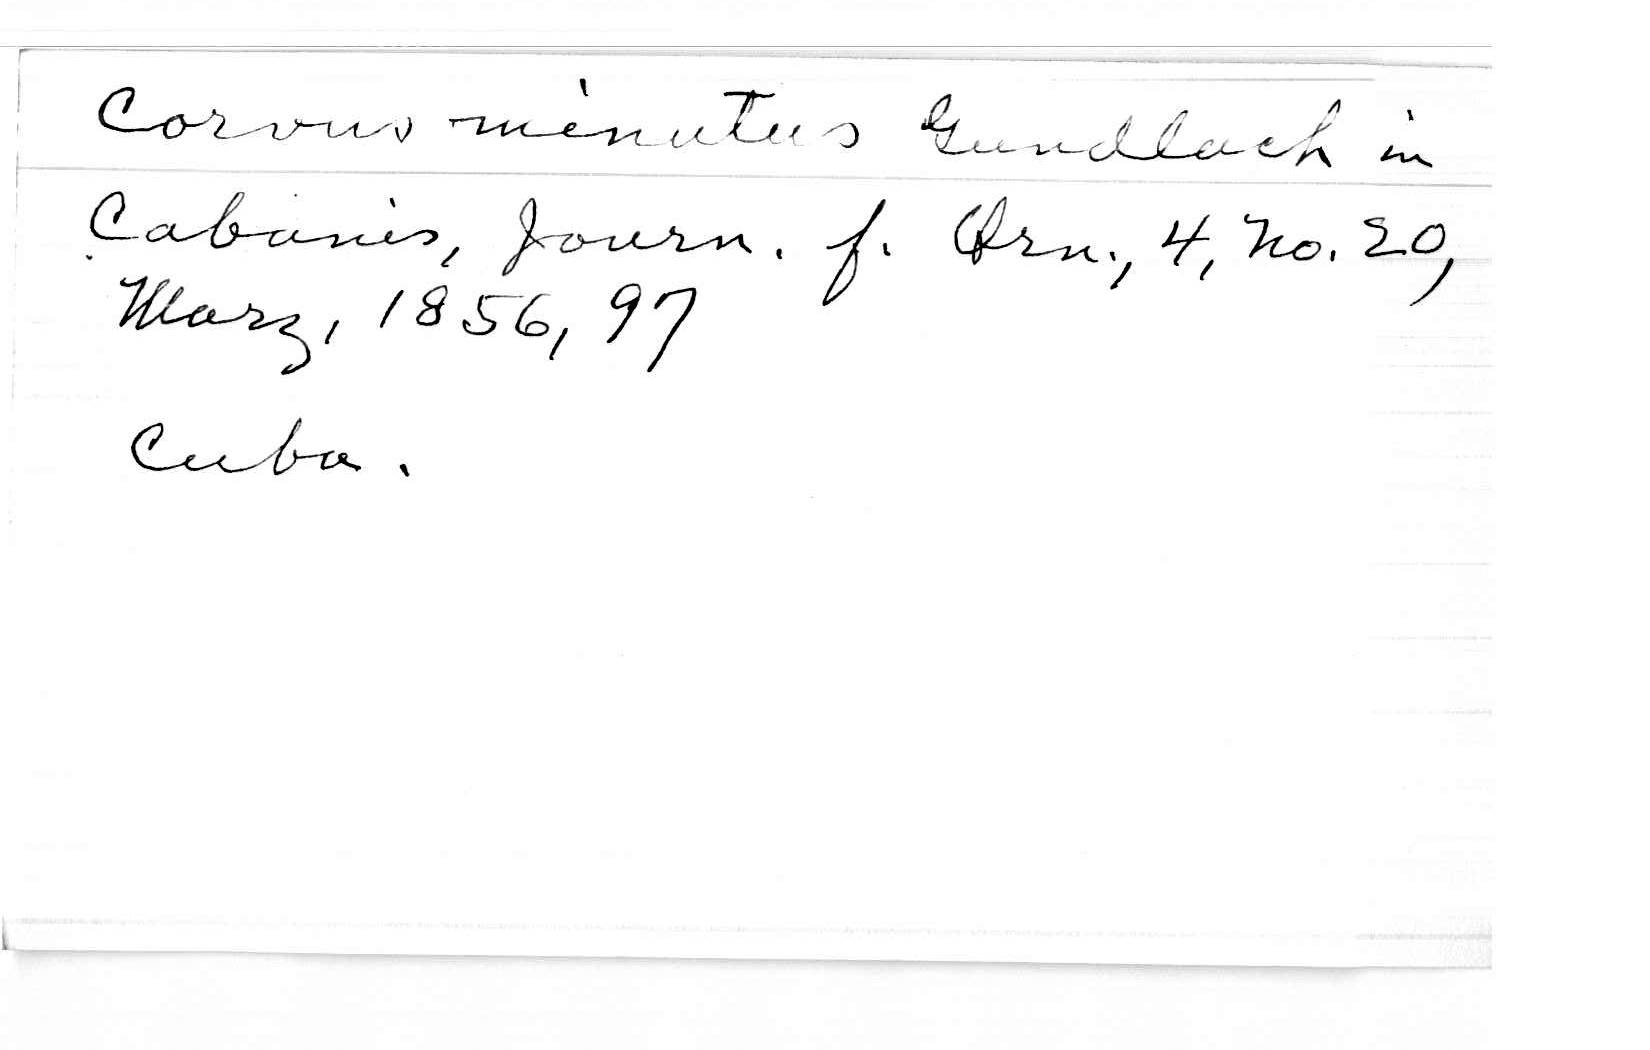 Corvus minutus Gundlach in
Cabanis, Journ. f. Orn., 4, No. 20,
Marz, 1856, 97
Cuba.